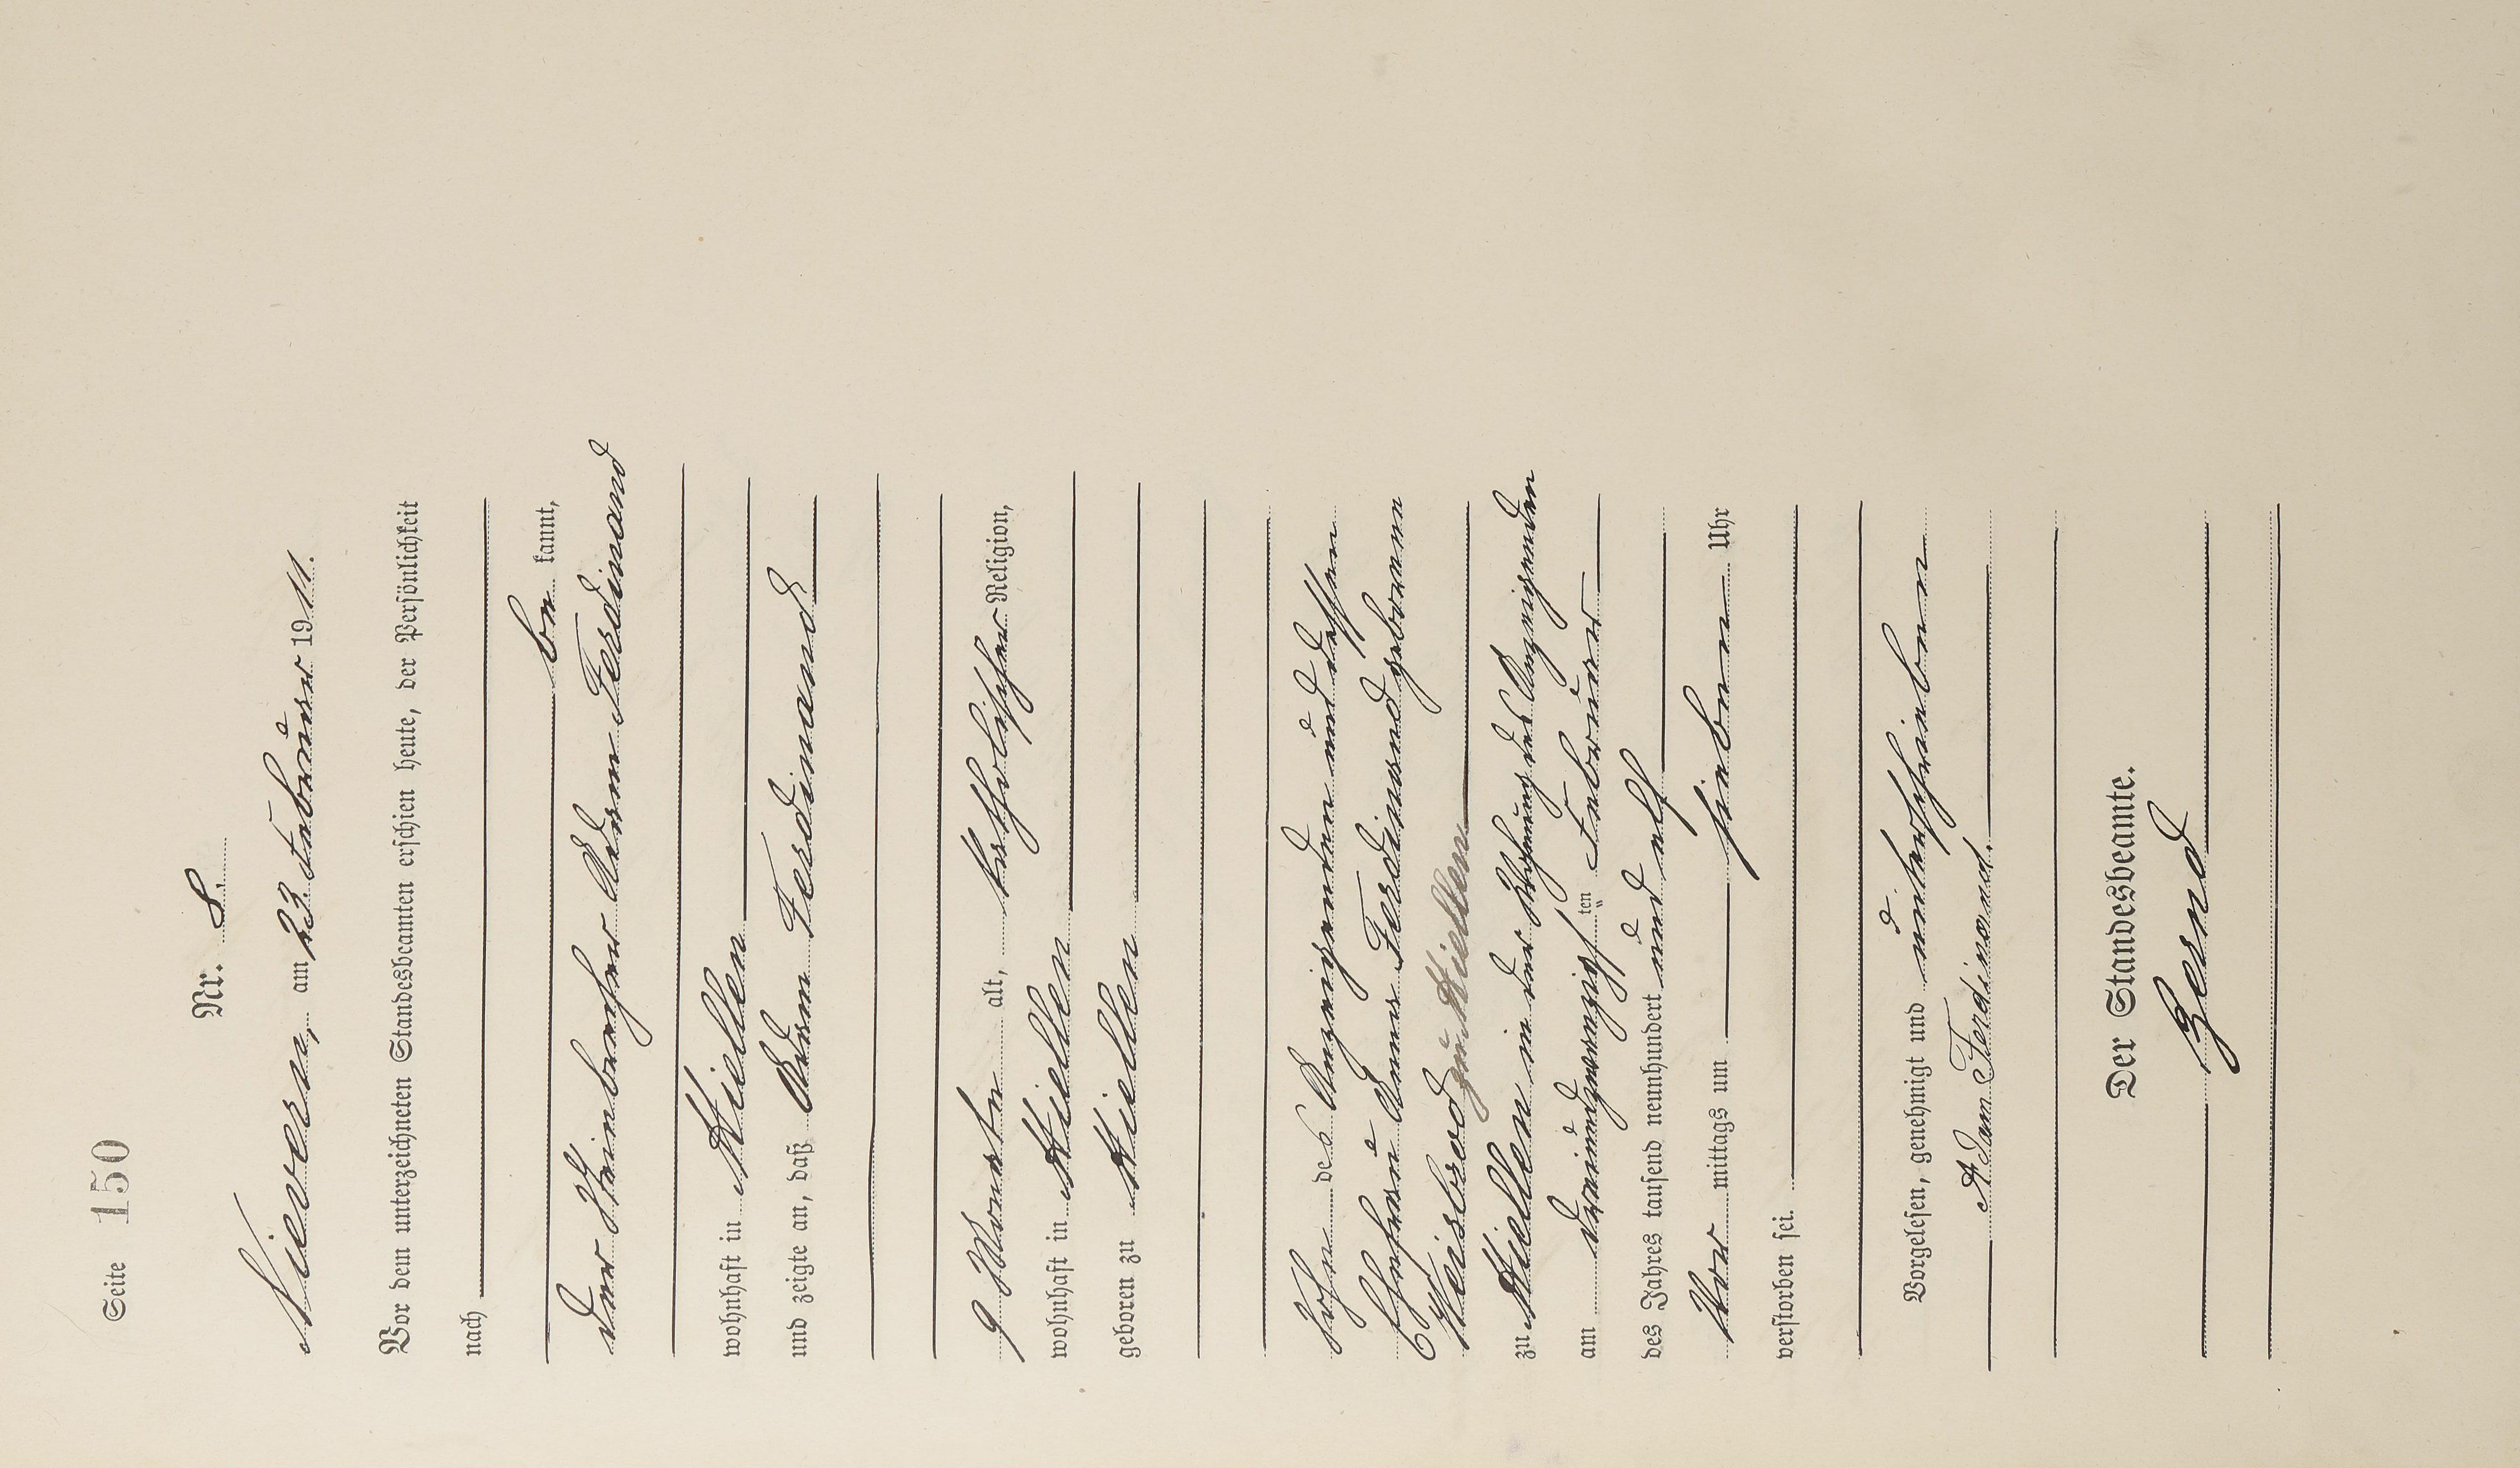 Seite 150
Nr. 8.
Nievern, am 23. Februar 1911.
Vor dem unterzeichneten Standesbeamten erschien heute, der Persönlichkeit
nach
be kannt,
der Steinbrecher Adam Ferdinand
wohnhaft in Miellen
und zeigte an, daß Adam Ferdinand
9 Monate alt, katholischer Religion,
wohnhaft in Miellen
geboren zu Miellen
Sohn des Anzeigenden und dessen
Ehefrau Anna Ferdinand geborenen
Weisbrod zu Miellen
zu Miellen in der Wohnung des Anzeigenden
am dreiundzwanzigsten Februar
des Jahres tausend neunhundert und elf
Vor mittags um sieben Uhr
verstorben sei.
Vorgelesen, genehmigt und unterschrieben
Adam Ferdinand.
Der Standesbeamte.